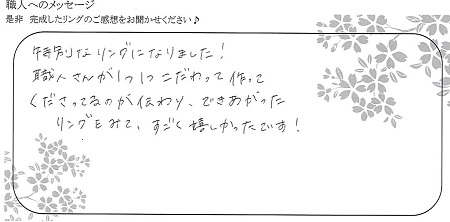 職人へのメッセージ
是非 完成したリングのご感想をお聞かせください♪
特別なリングになりました!
職人さんが1つ1つこだわって作って
くださってるのが伝わり、できあがった
リングをみて、すごく嬉しかったです!